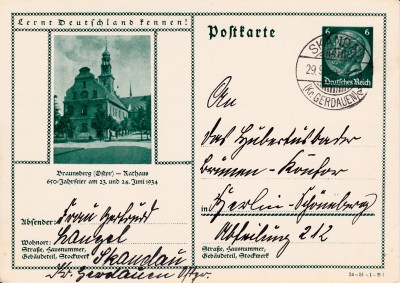 Lernt Deutschland kennen!
Braunsberg (Ostpr) — Rathaus
650-Jahrfeier am 23. und 24. Juni 1934
Absender: Frau Gertrud
Wohnort:
Straße, Hausnummer,
Gebäudeteil, Stockwerk
Skandau
Kr. Gerdauen Ostpr.
Postkarte
6 6
Deutsches Reich
29.
(Kr. GERDAUEN)
An
das Hubertusbader
Brunnen-Kontor
in Berlin-Schöneberg
Abteilung 212
Straße, Hausnummer,
Gebäudeteil, Stockwerk